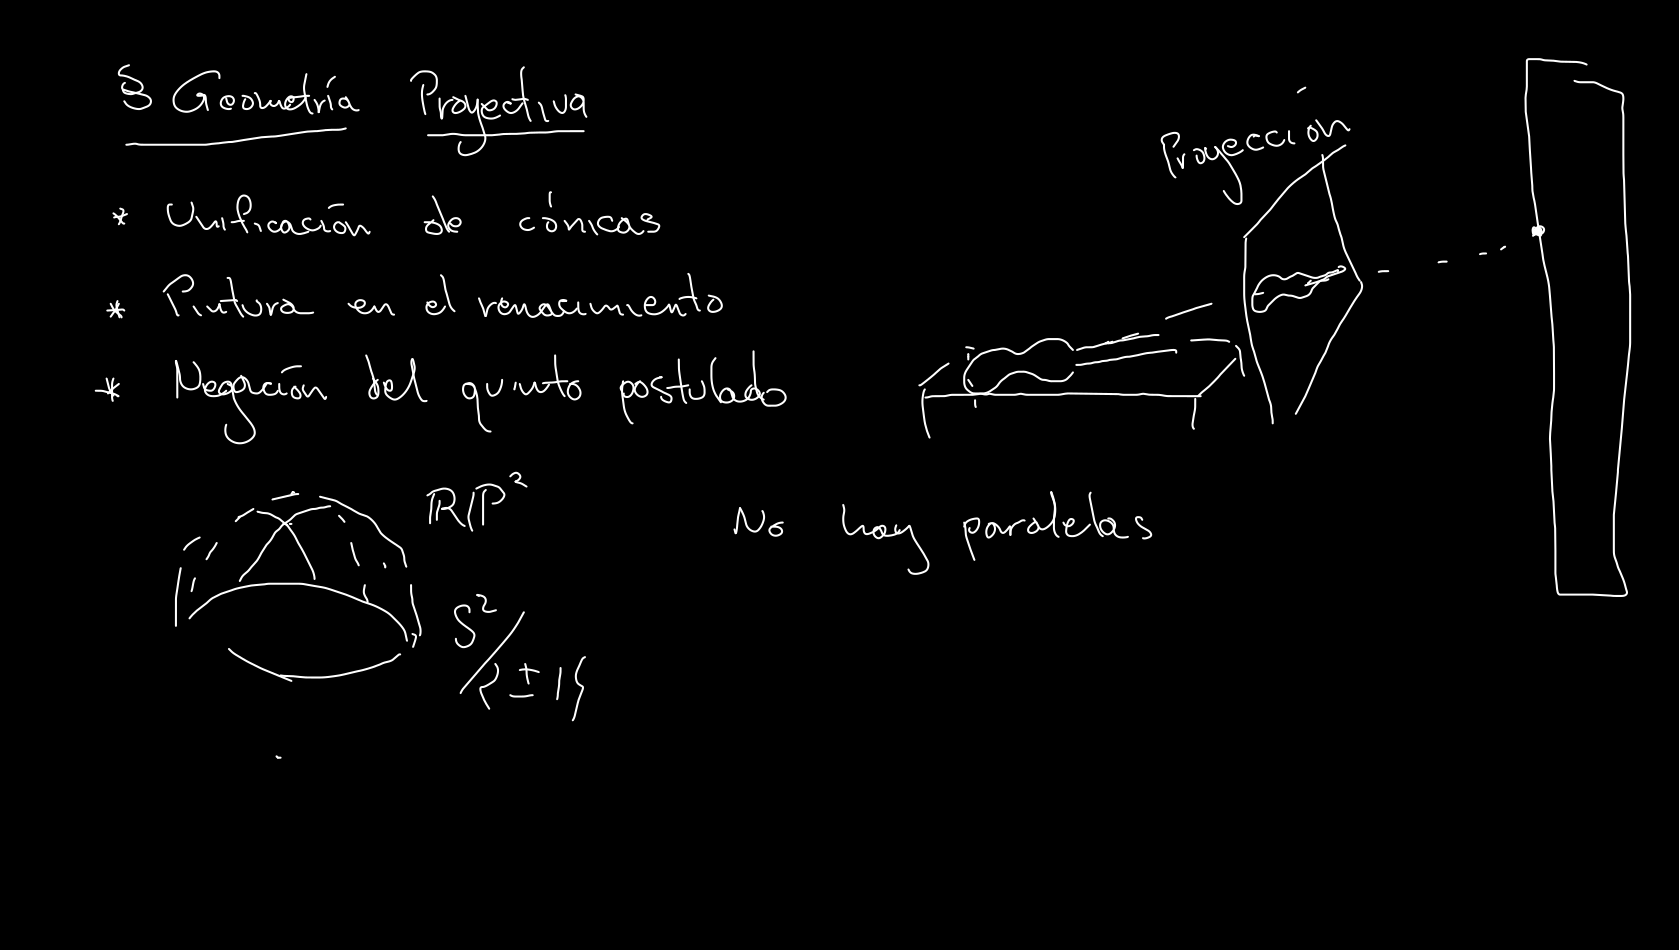 § Geometría Proyectiva
* Unificación de cónicas
* Pintura en el renacimiento
* Negación del quinto postulado
Proyección
RP²
No hay paralelas
S²/{±1}